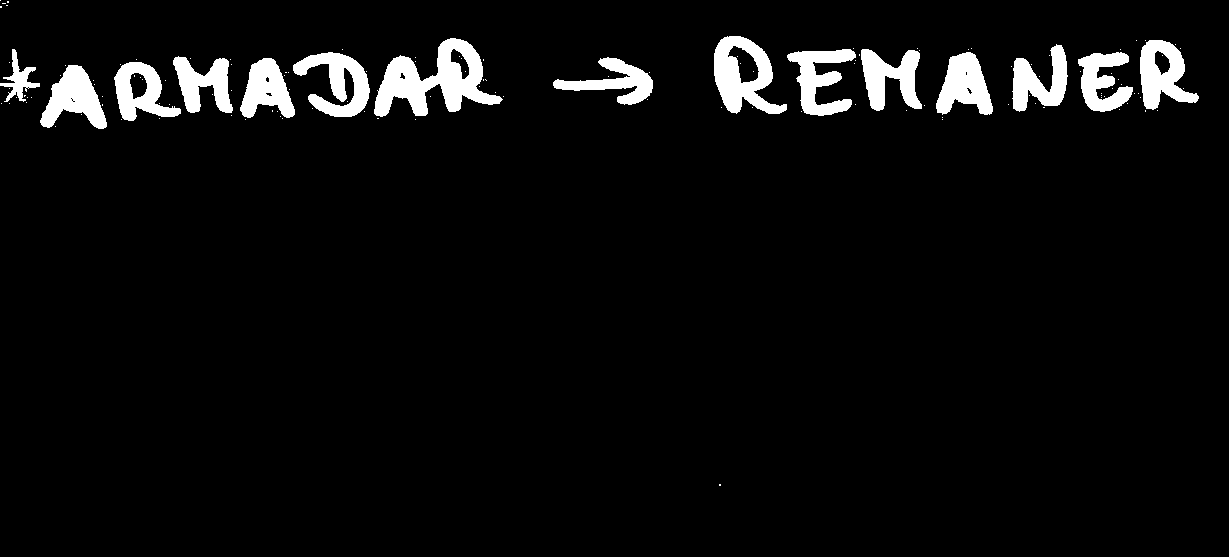 *ARMADAR → REMANER